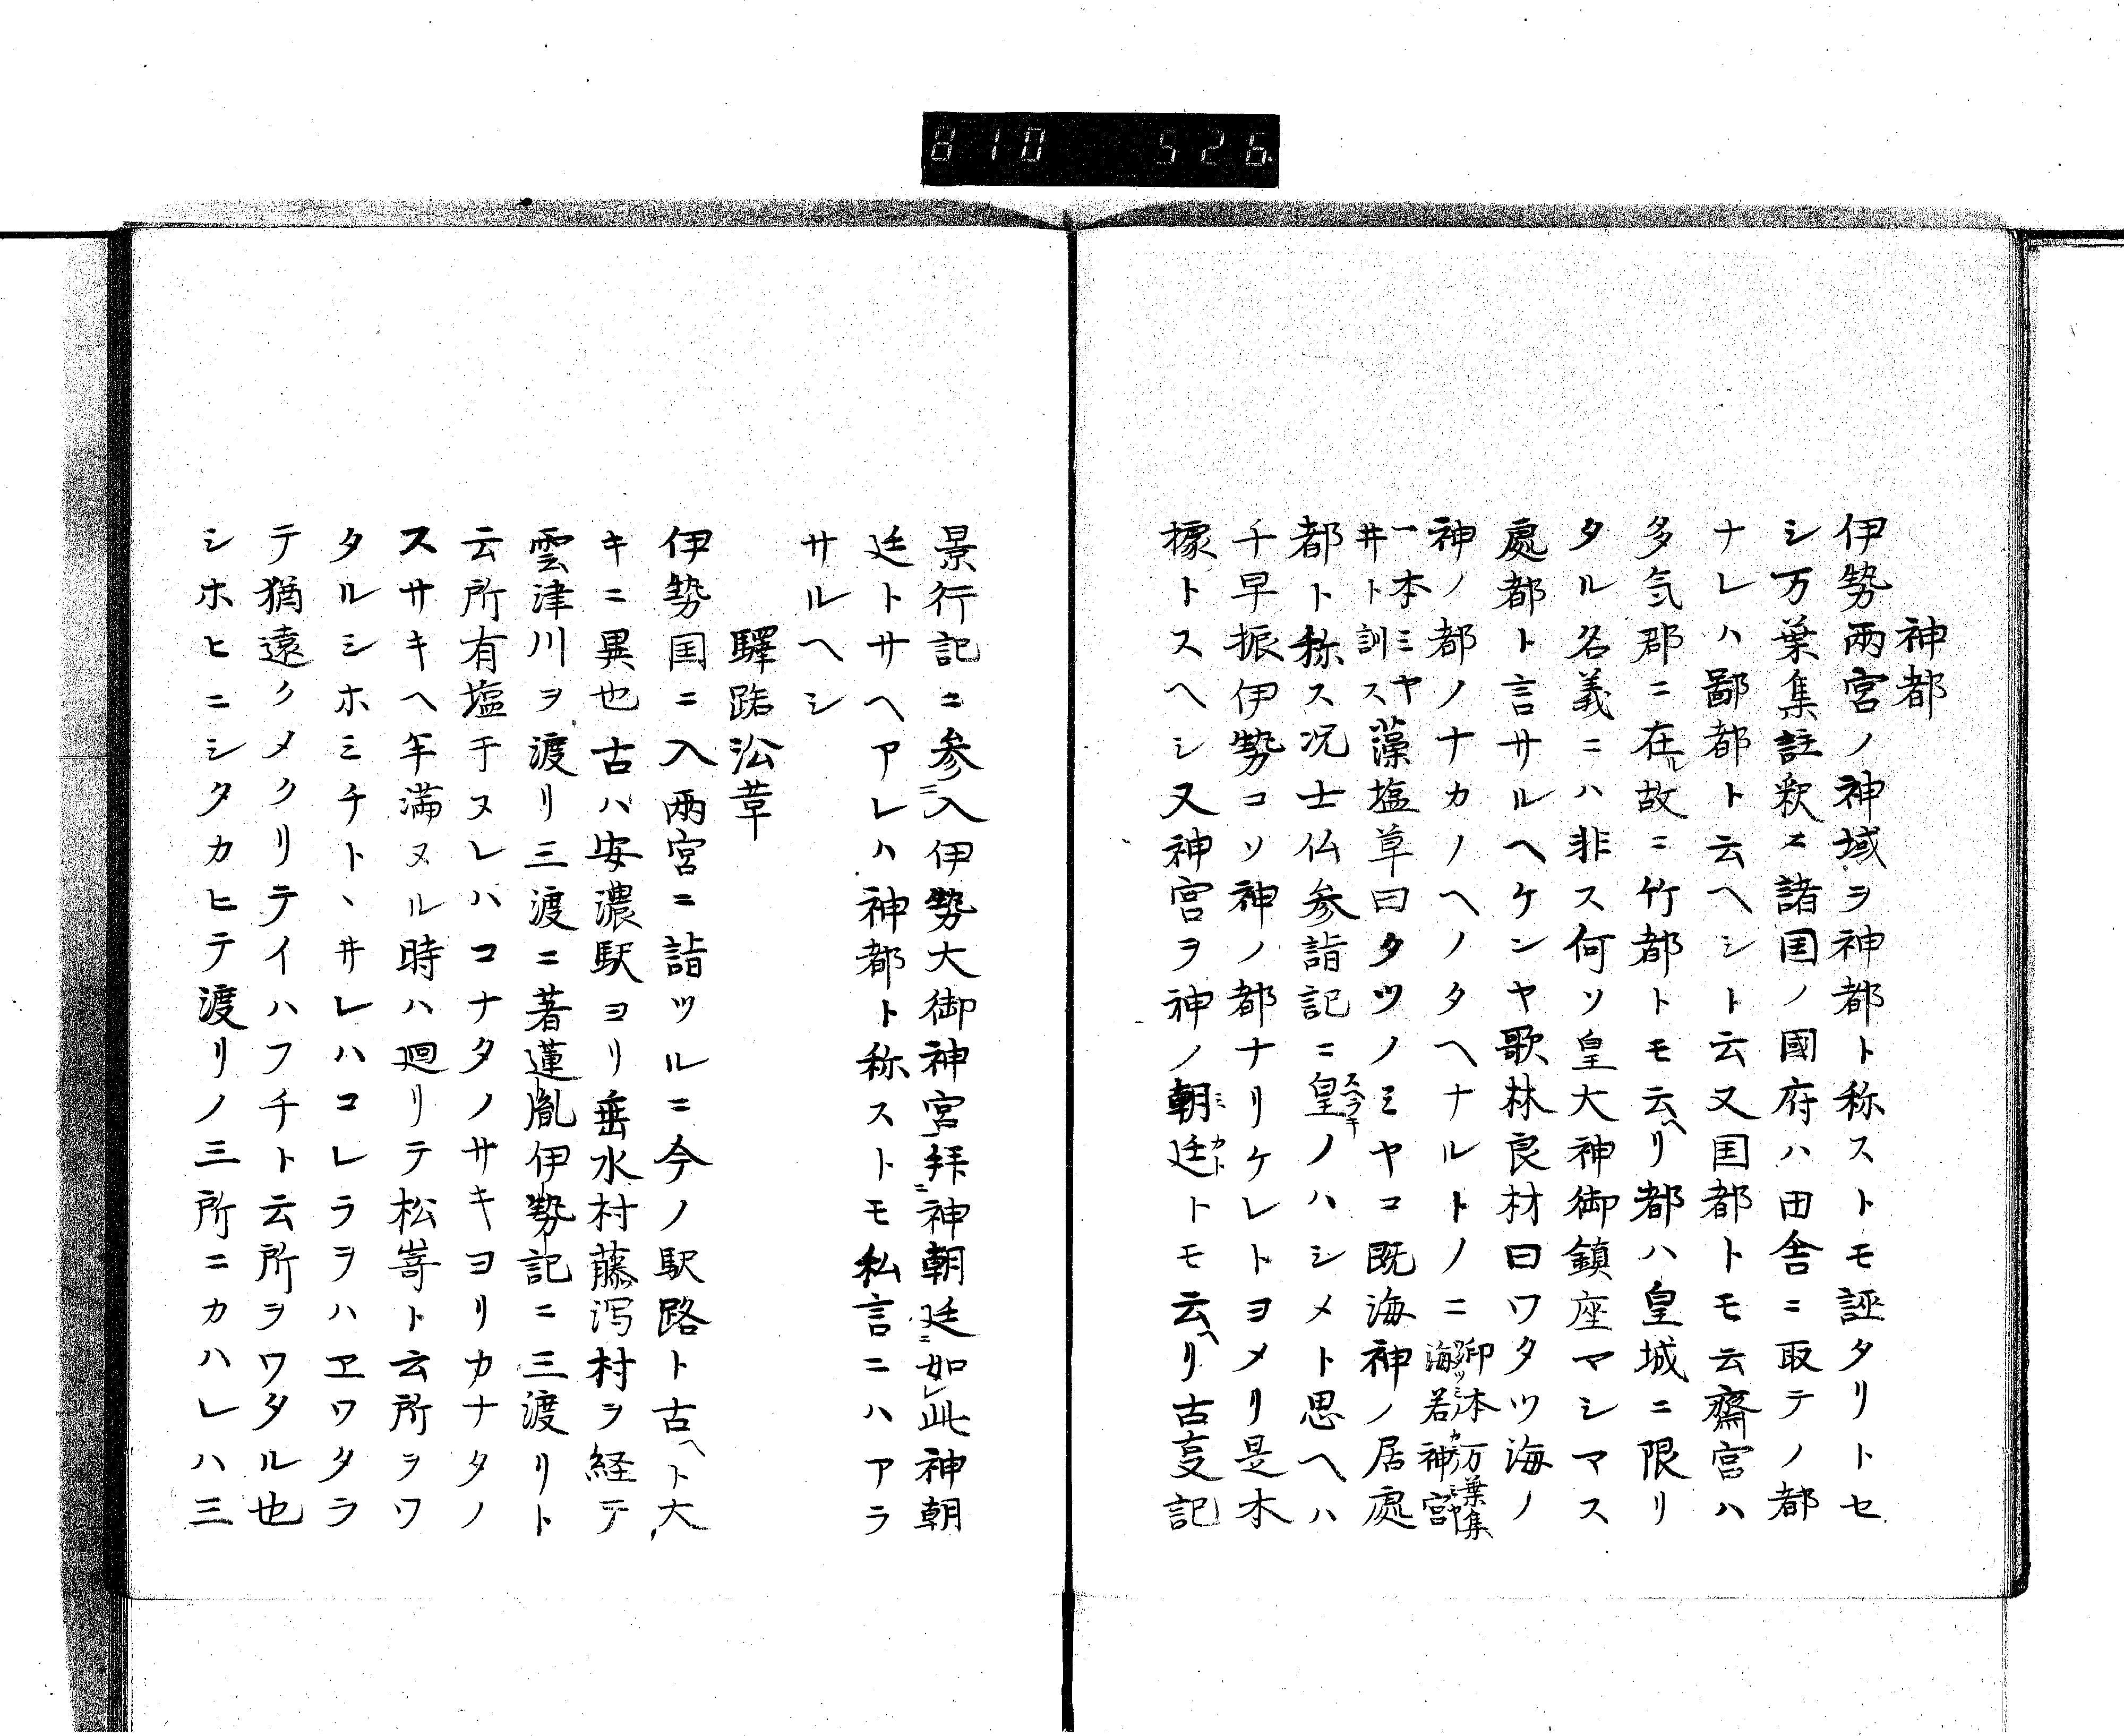 810 526
神都
伊勢兩宮ノ神域ヲ神都ト称ストモ誣タリトセ
シ万葉集註釈ニ諸国ノ國府ハ田舎ニ取テノ都
ナレハ鄙都ト云ヘシト云又国都トモ云齋宮ハ
多気郡ニ在ル故ニ竹都トモ云ヘリ都ハ皇城ニ限リ
タル名義ニハ非ス何ソ皇大神御鎮座マシマス
處都ト言サルヘケンヤ歌林良材曰ワタツ海ノ
神ノ都ノナカノヘノタヘナルトノニ 仰本万葉集 海若神宮
一本ミヤ井ト訓ス 藻塩草曰タツノミヤコ既海神ノ居處
都ト称ス况士仏参詣記ニ皇ノハシメト思ヘハ
千早振伊勢コソ神ノ都ナリケレトヨメリ是木
據トスヘシ又神宮ヲ神ノ朝廷トモ云ヘリ古叓記
景行記ニ参入伊勢大御神宮拜神朝廷如此神朝
廷トサヘアレハ神都ト称ストモ私言ニハアラ
サルヘシ
驛路㳂革
伊勢国ニ入兩宮ニ詣ツルニ今ノ駅路ト古ヘト大
キニ異也古ハ安濃駅ヨリ垂水村藤泻村ヲ経テ
雲津川ヲ渡リ三渡ニ著蓮胤伊勢記ニ三渡リト
云所有塩干ヌレハコナタノサキヨリカナタノ
スサキヘ午満ヌル時ハ廻リテ松嵜ト云所ヲワ
タルシホミチトヽ井レハコレラヲハヱワタラ
テ猶遠クメクリテイハフチト云所ヲワタル也
シホヒニシタカヒテ渡リノ三所ニカハレハ三